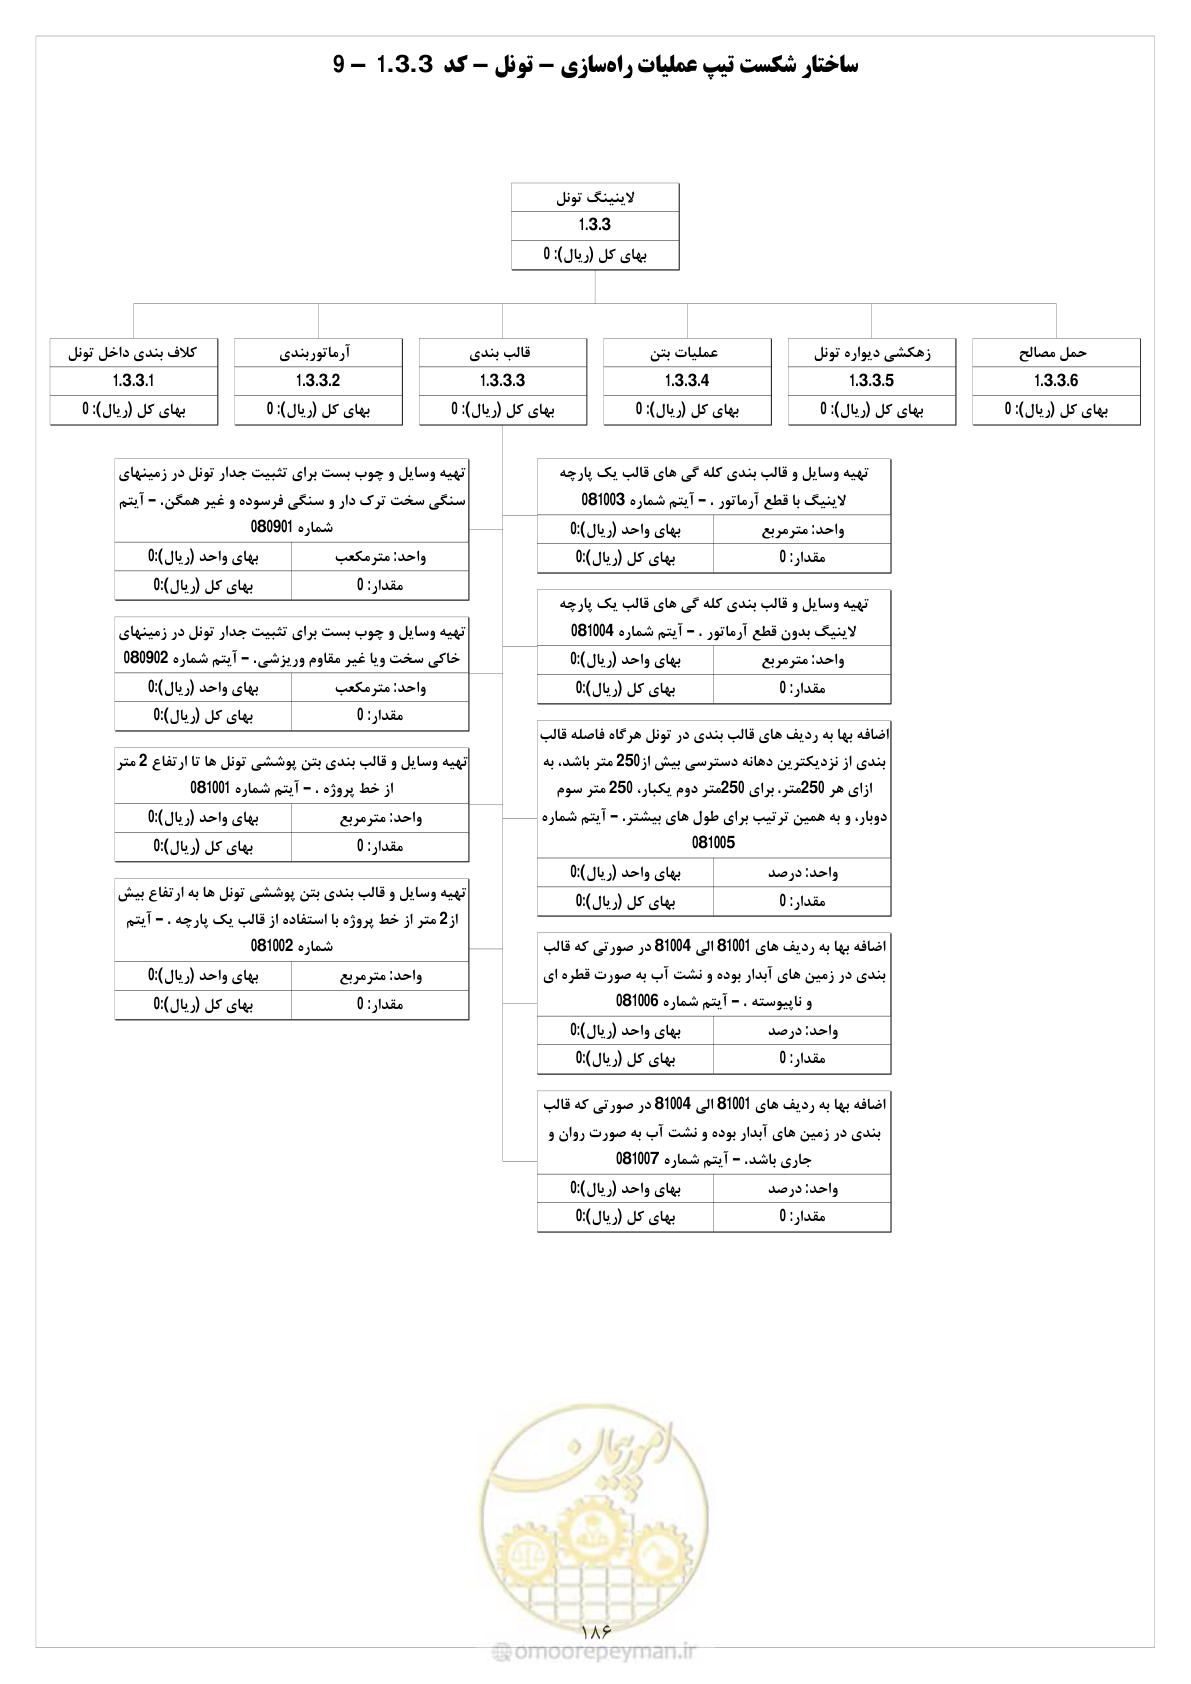 ساختار شکست تیپ عملیات راه‌سازی – تونل – کد 1.3.3 – 9
لاینینگ تونل
1.3.3
بهای کل (ریال): 0
کلاف بندی داخل تونل
1.3.3.1
بهای کل (ریال): 0
آرماتوربندی
1.3.3.2
بهای کل (ریال): 0
قالب بندی
1.3.3.3
بهای کل (ریال): 0
عملیات بتن
1.3.3.4
بهای کل (ریال): 0
زهکشی دیواره تونل
1.3.3.5
بهای کل (ریال): 0
حمل مصالح
1.3.3.6
بهای کل (ریال): 0
تهیه وسایل و چوب بست برای تثبیت جدار تونل در زمینهای
سنگی سخت ترک دار و سنگی فرسوده و غیر همگن. – آیتم
شماره 080901
واحد: مترمکعب
بهای واحد (ریال):0
مقدار: 0
بهای کل (ریال):0
تهیه وسایل و چوب بست برای تثبیت جدار تونل در زمینهای
خاکی سخت ویا غیر مقاوم وریزشی. – آیتم شماره 080902
واحد: مترمکعب
بهای واحد (ریال):0
مقدار: 0
بهای کل (ریال):0
تهیه وسایل و قالب بندی بتن پوششی تونل ها تا ارتفاع 2 متر
از خط پروژه . – آیتم شماره 081001
واحد: مترمربع
بهای واحد (ریال):0
مقدار: 0
بهای کل (ریال):0
تهیه وسایل و قالب بندی بتن پوششی تونل ها به ارتفاع بیش
از2 متر از خط پروژه با استفاده از قالب یک پارچه . – آیتم
شماره 081002
واحد: مترمربع
بهای واحد (ریال):0
مقدار: 0
بهای کل (ریال):0
تهیه وسایل و قالب بندی کله گی های قالب یک پارچه
لاینیگ با قطع آرماتور . – آیتم شماره 081003
واحد: مترمربع
بهای واحد (ریال):0
مقدار: 0
بهای کل (ریال):0
تهیه وسایل و قالب بندی کله گی های قالب یک پارچه
لاینیگ بدون قطع آرماتور . – آیتم شماره 081004
واحد: مترمربع
بهای واحد (ریال):0
مقدار: 0
بهای کل (ریال):0
اضافه بها به ردیف های قالب بندی در تونل هرگاه فاصله قالب
بندی از نزدیکترین دهانه دسترسی بیش از250 متر باشد، به
ازای هر 250متر. برای 250متر دوم یکبار، 250 متر سوم
دوبار، و به همین ترتیب برای طول های بیشتر. – آیتم شماره
081005
واحد: درصد
بهای واحد (ریال):0
مقدار: 0
بهای کل (ریال):0
اضافه بها به ردیف های 81001 الی 81004 در صورتی که قالب
بندی در زمین های آبدار بوده و نشت آب به صورت قطره ای
و ناپیوسته . – آیتم شماره 081006
واحد: درصد
بهای واحد (ریال):0
مقدار: 0
بهای کل (ریال):0
اضافه بها به ردیف های 81001 الی 81004 در صورتی که قالب
بندی در زمین های آبدار بوده و نشت آب به صورت روان و
جاری باشد. – آیتم شماره 081007
واحد: درصد
بهای واحد (ریال):0
مقدار: 0
بهای کل (ریال):0
امور پیمان
۱۸۶
@omoorepeyman.ir